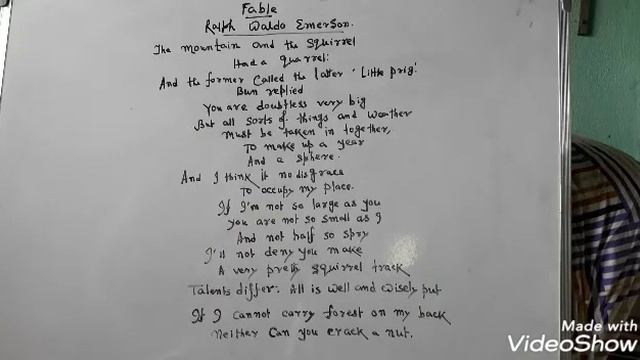 Fable
Ralph Waldo Emerson.
The mountain and the squirrel
Had a quarrel:
And the former called the latter 'Little prig'.
Bun replied
You are doubtless very big
But all sorts of things and weather
must be taken in together,
To make up a year
And a sphere.
And I think it no disgrace
To occupy my place.
If I'm not so large as you
you are not so small as I
And not half so spry
I'll not deny you make
A very pretty squirrel track
Talents differ: All is well and wisely put
If I cannot carry forest on my back
Neither can you crack a nut.
Made with
VideoShow